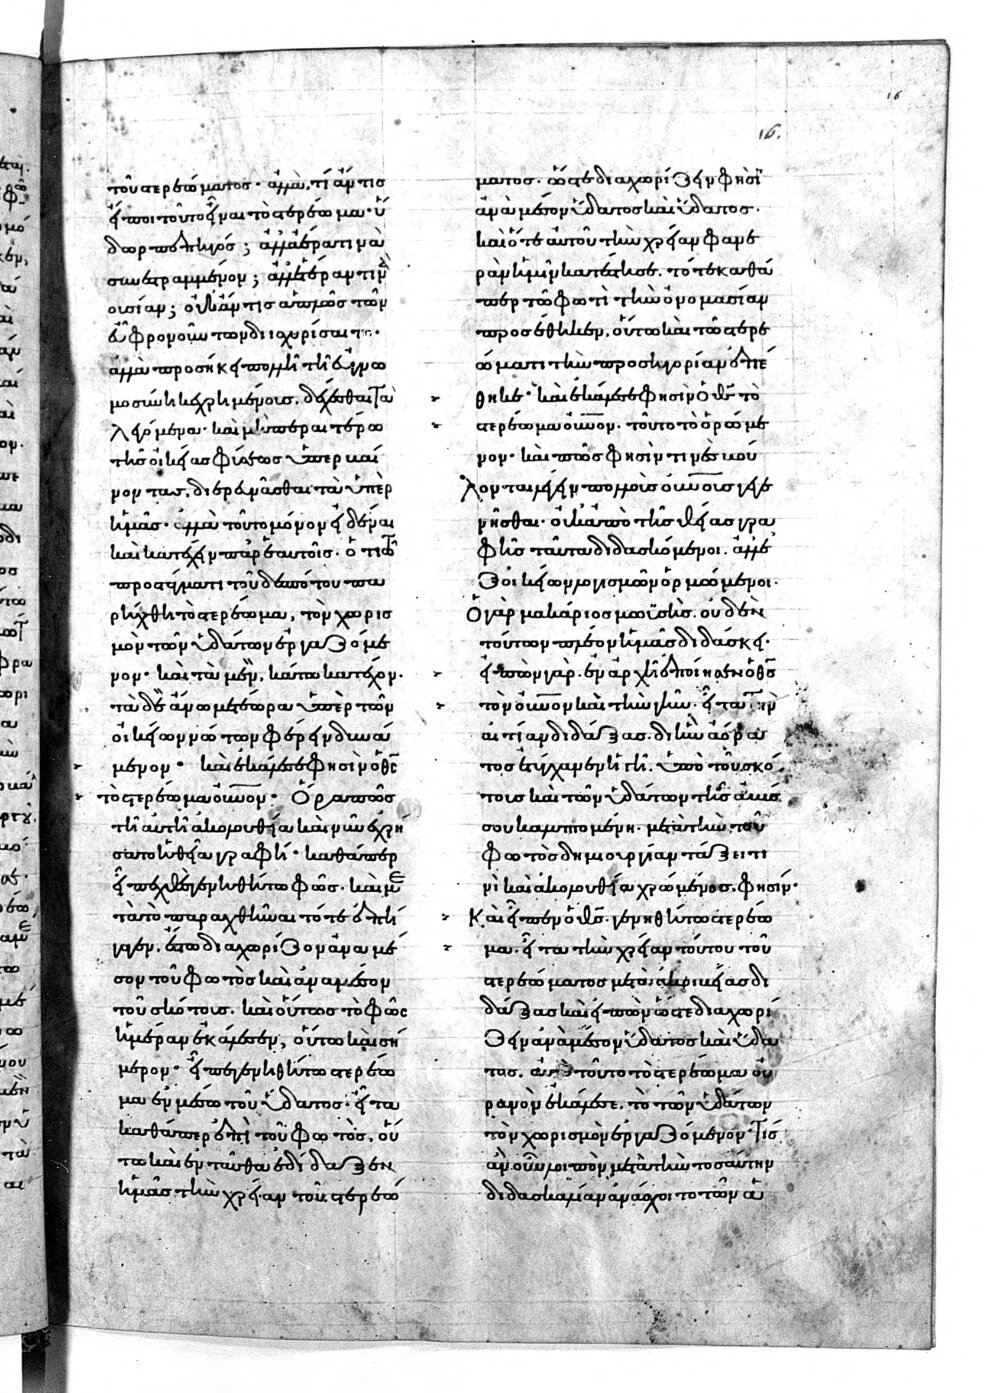 16
16.
τοῦ στερεώματος· ἀλλὰ τί ἄν τις
εἴποι τοῦτο εἶναι τὸ στερέωμα· ὕ
δωρ πεπηγός; ἀλλ' ἀέρα τινὰ
συνεστραμμένον; ἀλλ' ἑτέραν τινὰ
οὐσίαν; οὐκ ἄν τις ἁπλῶς τῶν
εὖ φρονούντων διισχυρίσαιτο·
ἀλλὰ προσήκει πολλῇ τῇ εὐγνω
μοσύνῃ κεχρημένους, δέχεσθαι τὰ
λεγόμενα· καὶ μὴ περαιτέρω
τῆς οἰκείας φύσεως ὑπερβαί
νοντας, διερευνᾶσθαι τὰ ὑπὲρ
ἡμᾶς· ἀλλὰ τοῦτο μόνον εἰδέναι
καὶ κατέχειν παρ' ἑαυτοῖς· ὅτι τῷ
προστάγματι τοῦ δεσπότου πα
ρήχθη τὸ στερέωμα, τὸν χωρισ
μὸν τῶν ὑδάτων ἐργαζόμε
νον· καὶ τὰ μὲν, κάτω κατέχον·
τὰ δὲ ἄνω μετέωρα ὑπὲρ τῶν
οἰκείων νώτων φέρειν δυνά
μενον· καὶ ἐκάλεσε φησὶν ὁ θς
τὸ στερέωμα οὐνον· Ὅρα πῶς
τῇ αὐτῇ ἀκολουθίᾳ καὶ νῦν ἐχρή
σατο ἡ θεία γραφή· καθάπερ
εἶπε χθὲς γενηθήτω φῶς· καὶ με
τὰ τὸ παραχθῆναι τότε ἐπή
γαγεν, ἔστω διαχωρίζον ἀνα μέ
σον τοῦ φωτὸς καὶ ἀνα μέσον
τοῦ σκότους, καὶ οὕτως τὸ φῶς
ἡμέραν ἐκάλεσεν, οὕτω καὶ σή
μερον· εἶπε γενηθήτω στερέω
μα ἐν μέσῳ τοῦ ὕδατος· εἶτα
καθάπερ ἐπὶ τοῦ φωτὸς, οὕ
τω καὶ ἐνταῦθα ἐδίδαξεν
ἡμᾶς τὴν χρείαν τοῦ στερεώ
ματος· ὥστε διαχωρίζειν φησὶ
ἀνὰ μέσον ὕδατος καὶ ὕδατος·
καὶ ὅτε αὐτοῦ τὴν χρείαν φανε
ρὰν ἡμῖν κατέστησε, τότε καθά
περ τῷ φωτὶ τὴν ὀνομασίαν
προσέθηκεν, οὕτω καὶ τῷ στερε
ώματι τὴν προσηγορίαν ἐπέ
θηκε· καὶ ἐκάλεσε φησὶν ὁ θς τὸ
στερέωμα οὐνον· τοῦτο τὸ ὁρώμε
νον· καὶ πῶς φησίν τινὲς βού
λονται λέγειν πολλοὺς οὐνους γεγε
νῆσθαι· οὐκ ἀπὸ τῆς θείας γρα
φῆς ταῦτα διδασκόμενοι· ἀλλ' ἐ
ξ οἰκείων λογισμῶν ὁρμώμενοι·
Ὁ γὰρ μακάριος μωϋσῆς, οὐδὲν
τούτων πλέον ἡμᾶς διδάσκει·
εἰπὼν γάρ· ἐν ἀρχῇ ἐποίησεν ὁ θς
τὸν οὐνον καὶ τὴν γῆν· εἶτα τὴν
αἰτίαν διδάξας· δι' ἣν ἀόρα
τος ἐτύγχανεν ἡ γῆ, ὑπὸ τοῦ σκό
τους καὶ τῶν ὑδάτων τῆς ἀβύσ
σου καλυπτομένη· μετὰ τὴν τοῦ
φωτὸς δημιουργίαν τάξει τι
νὶ καὶ ἀκολουθίᾳ χρώμενος, φησίν·
Καὶ εἶπεν ὁ θς· γενηθήτω στερέω
μα· εἶτα τὴν χρείαν τούτου τοῦ
στερεώματος μετὰ ἀκριβείας δι
δάξας καὶ εἰπὼν ὥστε διαχωρί
ζειν ἀνὰ μέσον ὕδατος καὶ ὕδα
τος, αὐτὸ τοῦτο τὸ στερέωμα οὐ
ρανὸν ἐκάλεσε, τὸ τῶν ὑδάτων
τὸν χωρισμὸν ἐργαζόμενον· Τίς
ἂν οὖν λοιπὸν μετὰ τὴν τοσαύτην
διδασκαλίαν ἀνάσχοιτο τῶν ἁ